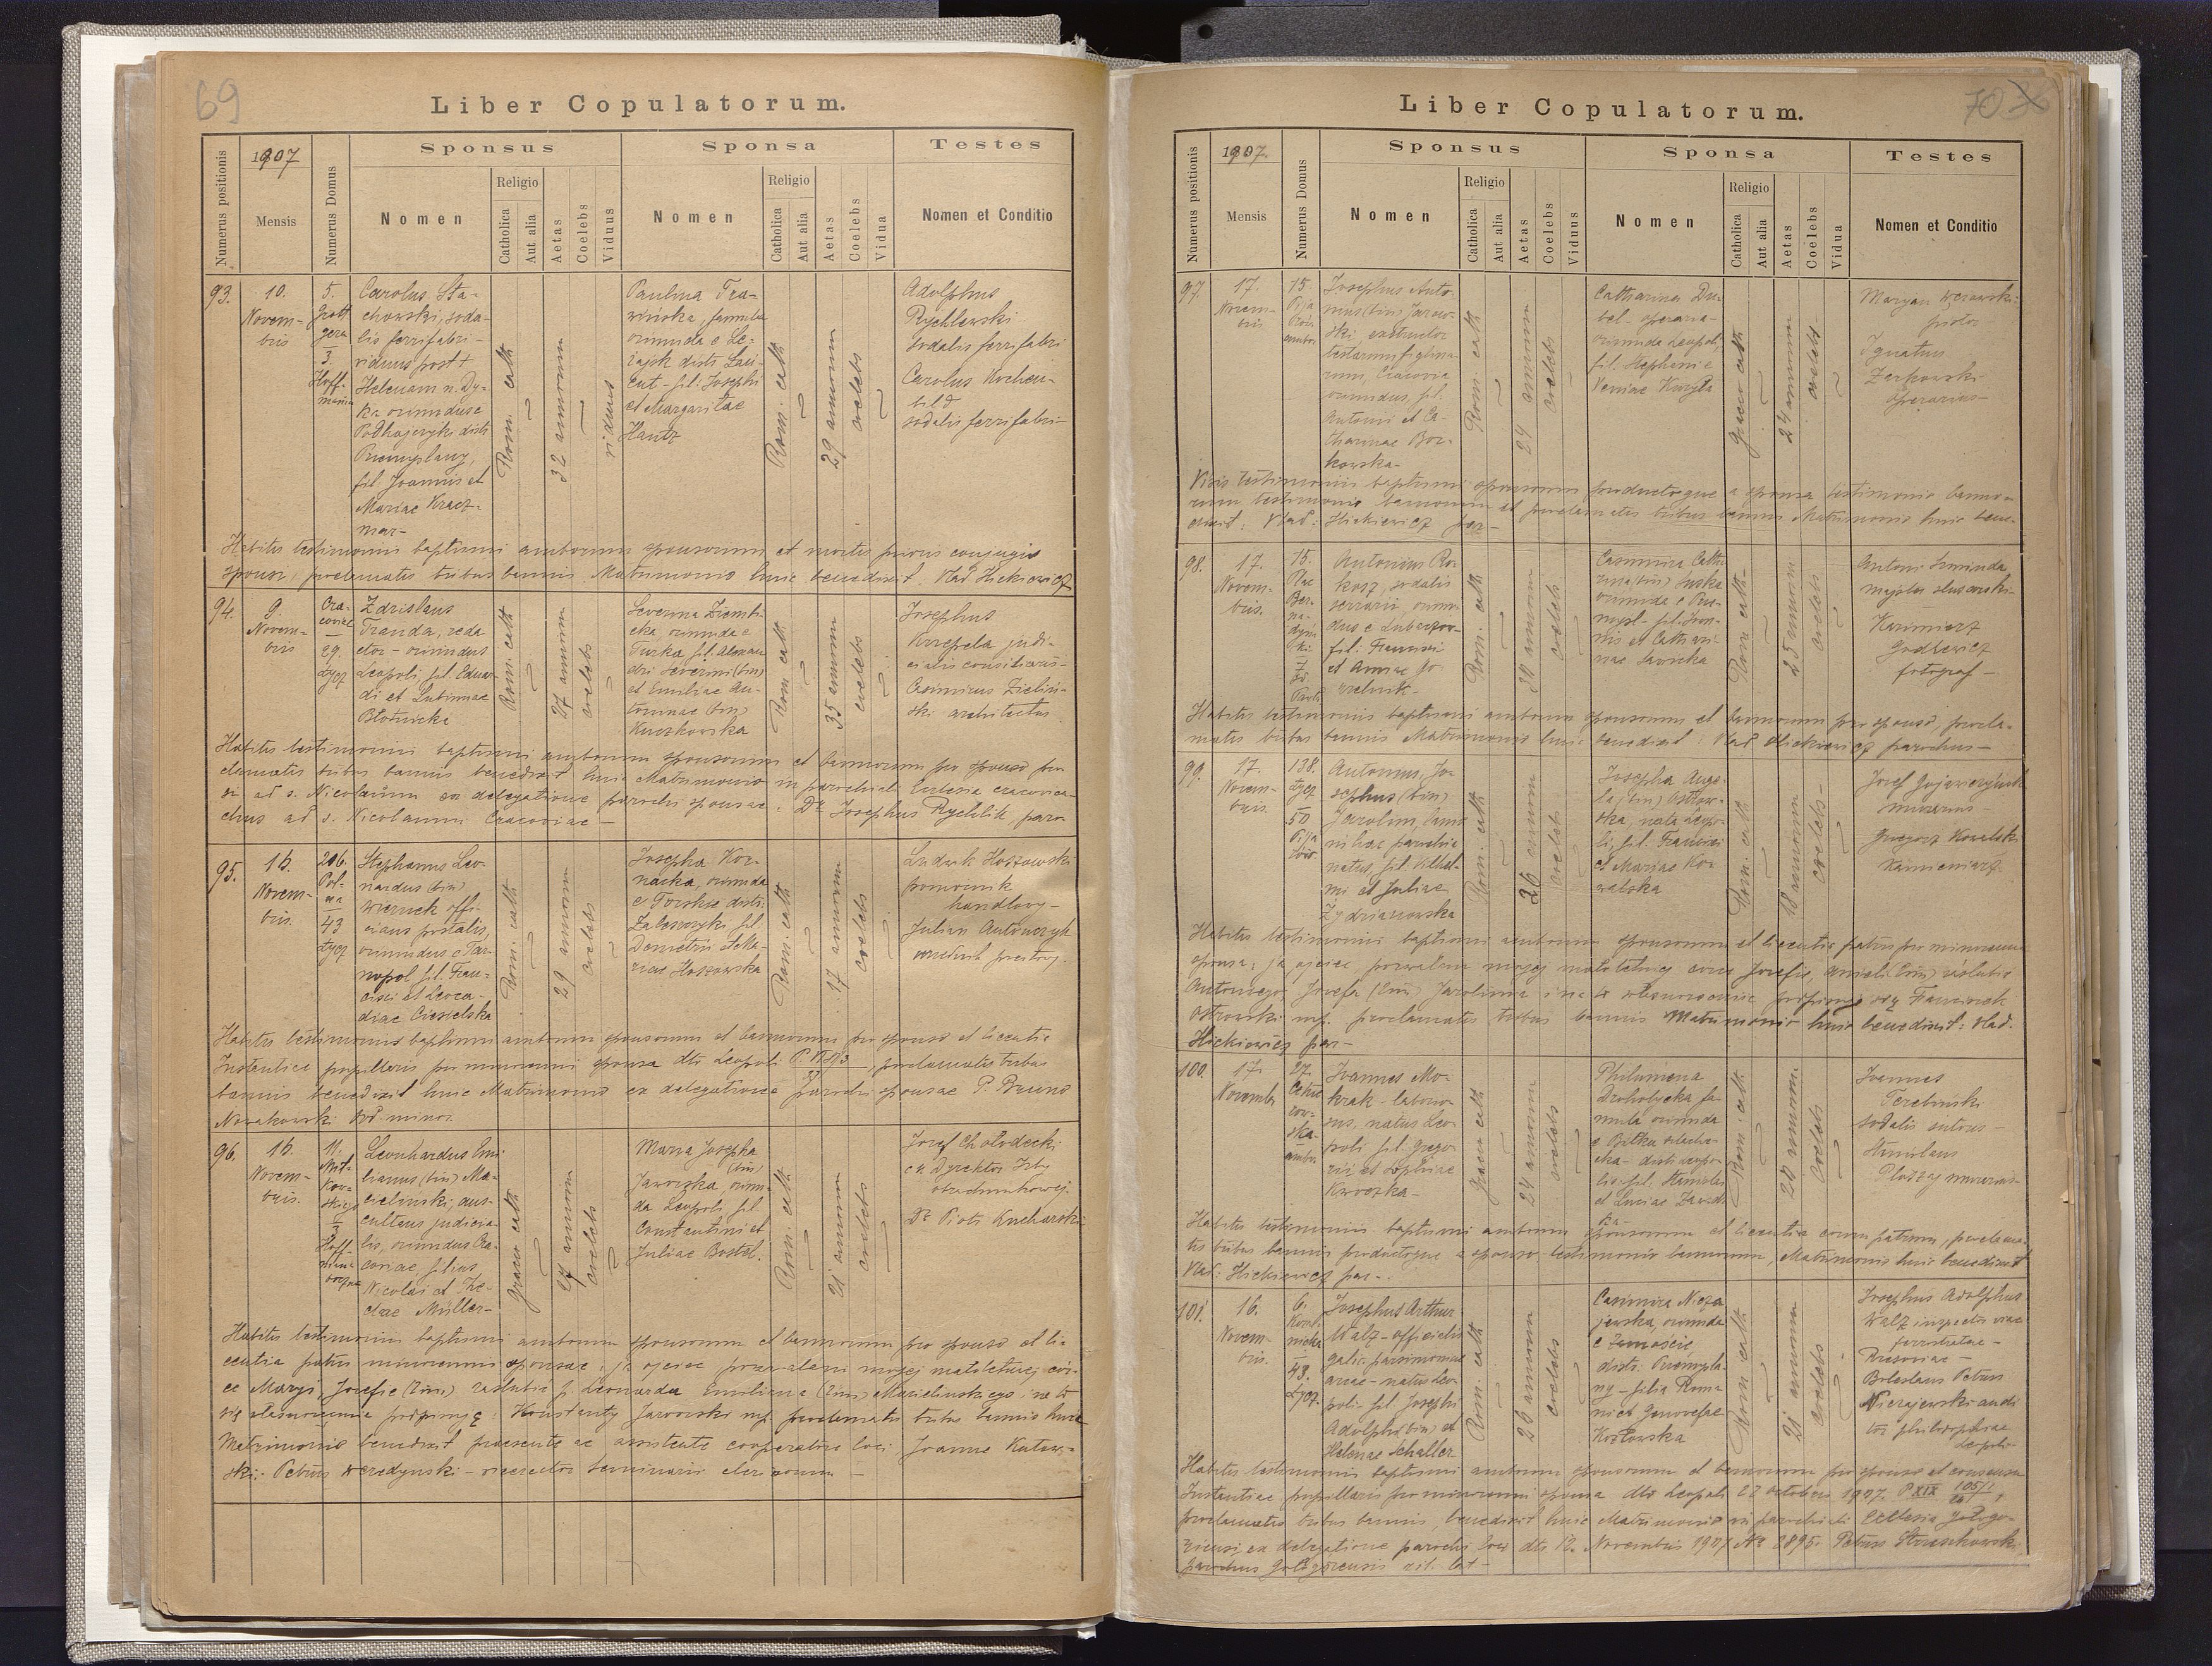 69
Liber Copulatorum.
Numerus positionis
1907
Mensis
Numerus Domus
Sponsus
Nomen
Religio
Catholica
Aut alia
Aetas
Coelebs
Viduus
Sponsa
Nomen
Religio
Catholica
Aut alia
Aetas
Coelebs
Vidua
Testes
Nomen et Conditio
93.
10.
Novem-
bris
5.
Grott
gera
3.
Hoff-
manna
Carolus Sta-
chowski, soda-
lis ferrifabri-
viduus post +
Helenam n. Dy-
ka oriundus e
Podhajczyki distr
Przemyslany,
fil. Joannis et
Mariae Kracz-
mar-
Rom. cath
32 annorum
viduus
Paulina Tra-
wińska, famula
oriunda e Le-
żajsk distr. Łań-
cut - fil. Josephi
et Margaritae
Hantz
Rom. cath
29 annorum
coelebs
Adolphus
Rychlewski
sodalis ferrifabri
Carolus Kochen-
bild
sodalis ferrifabri-
Habitis testimoniis baptismi amborum sponsorum et mortis prioris conjugis
sponsi, proclamatis tribus bannis Matrimonio huic benedixit. Vlad Hickiewicz
94.
9.
Novem-
bris
Cra-
coviae
29
Łycz
Zdzislaus
Tranda, reda
ctor - oriundus
Leopoli, fil. Eduar-
di et Lubinae
Błotnicka
Rom. cath
27 annorum
coelebs
Severina Ziembi-
cka, oriunda e
Turka fil. Alexan
dri Severini (bin)
et Emiliae An-
toninae (bin)
Kruszkowska
Rom cath.
35 annorum
coelebs
Josephus
Korzepela judi-
cialis consiliarius-
Casimirus Zieliń-
ski architectus
Habitis testimoniis baptismi amborum sponsorum et bannorum pro sponso pro
clamatis tribus bannis benedixit huic Matrimonio in parochiali Ecclesia cracovien-
si ad s. Nicolaum ex delegatione parochi sponsae: Dr. Josephus Rychlik, paro
chus ad s. Nicolaum Cracoviae -
95.
16.
Novem-
bris.
206.
Pol-
na
43
Łycz
Stephanus Leo-
nardus (bin)
Wieruck offi-
cians postalis,
oriundus e Tar-
nopol fil. Fran-
cisci et Leoca-
diae Ciesielska
Rom. cath
29 annorum
coelebs
Josepha Koz-
nacka, oriunda
e Torskie distr.
Zaleszczyki fil.
Demetrii et Ma-
riae Hoszowska
Rom. cath
17 annorum
coelebs
Ludwik Hoszowski
pomocnik
handlowy-
Julian Antończyk
urzędnik pocztowy-
Habitis testimoniis baptismi amborum sponsorum et bannorum pro sponso et licentia
Instantiae pupillaris pro minorenni sponsa dto Leopoli proclamatis tribus
bannis benedixit huic Matrimonio ex delegatione Parochi sponsae P. Bruno
Nowakowski Ord. minor.
96.
16.
Novem-
bris.
11.
Hoff-
Leonhardus Emi
lianus (bin) Ma-
cieliński, aus-
cultans judicia-
lis, oriundus Cra-
coviae, filius
Nicolai et The-
clae Müller-
graeco cath
27 annorum
coelebs
Maria Josepha
(bin)
Jaworska, oriun-
da Leopoli, fil
Constantini et
Juliae Bostel.
Rom. cath
21 annorum
coelebs
Josef Chołodecki
c.k. Dyrektor Izby
obrachunkowej.
Dr Piotr Kucharski
Habitis testimoniis baptismi amborum sponsorum et bannorum pro sponso et li-
centia patris minorennis sponsae: ja ojciec pozwalam mojej małoletniej cór-
ce Maryi Josefie (2im.) zaślubić p. Leonarda Emiliana (2im) Macielińskiego i na to
się własnoręcznie podpisuję: Konstanty Jaworski mp. proclamatis tribus bannis huic
Matrimonio benedixit praesente ac assistente cooperatore loci Joanne Kutaw-
ski: Petrus Weredynski - vicerector Seminarii clericorum -
70
Liber Copulatorum.
Numerus positionis
1907.
Mensis
Numerus Domus
Sponsus
Nomen
Religio
Catholica
Aut alia
Aetas
Coelebs
Viduus
Sponsa
Nomen
Religio
Catholica
Aut alia
Aetas
Coelebs
Vidua
Testes
Nomen et Conditio
97.
17.
Novem-
bris
15
Pija
rów
ambo
Josephus Anto-
nius (bin) Jarow-
ski exstructor
testarum figlina-
rum, Cracovia
oriundus, fil.
Antonii et Ca-
tharinae Bor-
kowska-
Rom. cath
29 annorum
coelebs
Catharina Du-
bel - operaria-
oriunda Leopoli,
fil. Stephani e
Xeniae Kuryła
graeco cath
24 annorum
coelebs-
Maryan Wesowski
pictor
Ignatius
Zarkowski
operarius-
Visis testimoniis baptismi sponsorum productoque a sponsa testimonio banno-
rum, testimonio bannorum et proclamatis tribus bannis Matrimonio huic bene-
dixit: Vlad: Hickiewicz par-
98.
17.
Novem-
bris.
15.
Plac
Ber-
na-
dyń
ski
Antonius Ro-
kosz, sodalis
serrarii, oriun
dus e Lubaczow-
fil: Francisci
et Annae Go
rzelnik-
Rom. cath
30 annorum
coelebs
Casimira Catha
rina (bin) Suska
oriunda e Prze-
mysl- fil. Joan-
nis et Cathari-
nae Sawicka
Rom cath-
25 annorum
coelebs
Antoni Smiada
majster slusarski-
Kazimierz
Godlewicz
fotograf -
Habitis testimoniis baptismi amborum sponsorum et bannorum pro sponso, procla-
matis tribus bannis Matrimonio huic benedixit: Vlad Hickiewicz parochus-
99.
17.
Novem-
bris
138.
Łycz
50
Pija
rów.
Antonius, Jo-
sephus (bin)
Jarolim,
in hac parochia
natus, fil. Wilhel-
mi et Juliae
Żydziakowska
Rom. cath
26 annorum
coelebs
Josepha Ange-
la (bin) Ostrow-
ska, nata Leopo-
li, fil. Francisci
et Mariae Ko-
walska
Rom. cath
18 annorum
coelebs-
Josef Gojawiczyński
murarius-
Grzegorz Kowalski
kamieniarz-
Habitis testimoniis baptismi amborum sponsorum et licentia patris pro minorenni
sponsa: ja ojciec pozwalam mojej małoletniej córce Josefie, Anieli (2im) zaślubić
Antoniego, Josefa (2im) Jarolima i na to własnoręcznie podpisuję się Franciszek
Ostrowski mp. proclamatis tribus bannis Matrimonio huic benedixit: Vlad.
Hickiewicz par-
100.
17.
Novembr
27.
Ioannes Mo-
krak - laborio-
sus, natus Leo
poli fil. Grego-
rii et Sophiae
Kworska-
graeco cath
24 annorum
coelebs
Philumena
Drohobycka fa-
mula oriunda
e Bilka szlache
cka- distr. Leopo-
lis- fil. Stanislai
et Luciae Zawad
ka-
Rom. cath
20 annorum.
coelebs
Ioannes
Terebinski
sodalis sutoris-
Stanislaus
Pluszaj murarius-
Habitis testimoniis baptismi amborum sponsorum et licentia eorum patrum, proclama-
tis tribus bannis productoque a sponso testimonio bannorum, Matrimonio huic benedixit
Vlad: Hickiewicz par-.
101.
16.
Novem-
bris.
6.
43.
Łycz.
Josephus Arthur
Walz - officialis
galic. parsimoniae
ariae - natus Leo-
poli- fil. Josephi
Adolphi (bin) et
Helenae Schaller
Rom. cath
26 annorum
coelebs
Casimira Nieza
jewska, oriunda
e Zamoście,
distr. Przemysla-
ny - filia Roma-
ni et Genovefae
Kozłowska
Rom cath
21 annorum
coelebs
Josephus Adolphus
Walz inspector viae
ferratae-
Boleslaus Petrus
Niezajewski audi
tor philosophiae
Leopoli-
Habitis testimoniis baptismi amborum sponsorum et bannorum pro sponso et consensu
Instantiae pupillaris pro minorenni sponsa dto Leopoli 22 octobris 1907. P. XIX
proclamatis tribus bannis, benedixit huic Matrimonio in parochiali Ecclesia Gołogo-
rensi, ex delegatione parochi loci dto 12. Novembris 1907 No 2895. Petrus Strzeszkowski,
parochus Gołogorensis rit. lat-